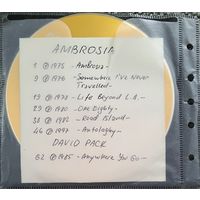 AMBROSIA
1 ℗ 1975 - Ambrosia -
9 ℗ 1976 - Somewhere I've Never Travelled -
19 ℗ 1978 - Life Beyond L.A. -
29 ℗ 1980 - One Eighty -
38 ℗ 1982 - Road Island -
46 ℗ 1997 - Anthology -
DAVID PACK
62 ℗ 1985 - Anywhere You Go -